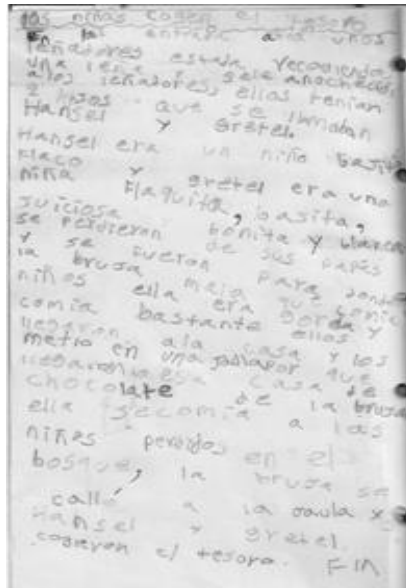 las niñas cogen el tesoro
En la entrare aria unos
leñatores estaja recogienda
una leña se le anochecio
alos leñatores, ellos tenian
2 Hijos que se llmaban
Hansel y gretel.
Hansel era un niño bajito
Flaco y gretel era una
niña Flaquita, basita,
juiciosa bonita y blanca
se perdieron de sus papas
y se fueron para donde
la brusa mala que comia
niños ella era gorda y
comia bastante ellos
llegaron ala casa y los
metio en una por que
llegaron esa casa de
chocolate de la brusa
ella secomia a las
niñas perdidos en el
bosque, la brusa se
calló a la oaula y
Hansel y gretel.
cogieron el tesoro. FIN